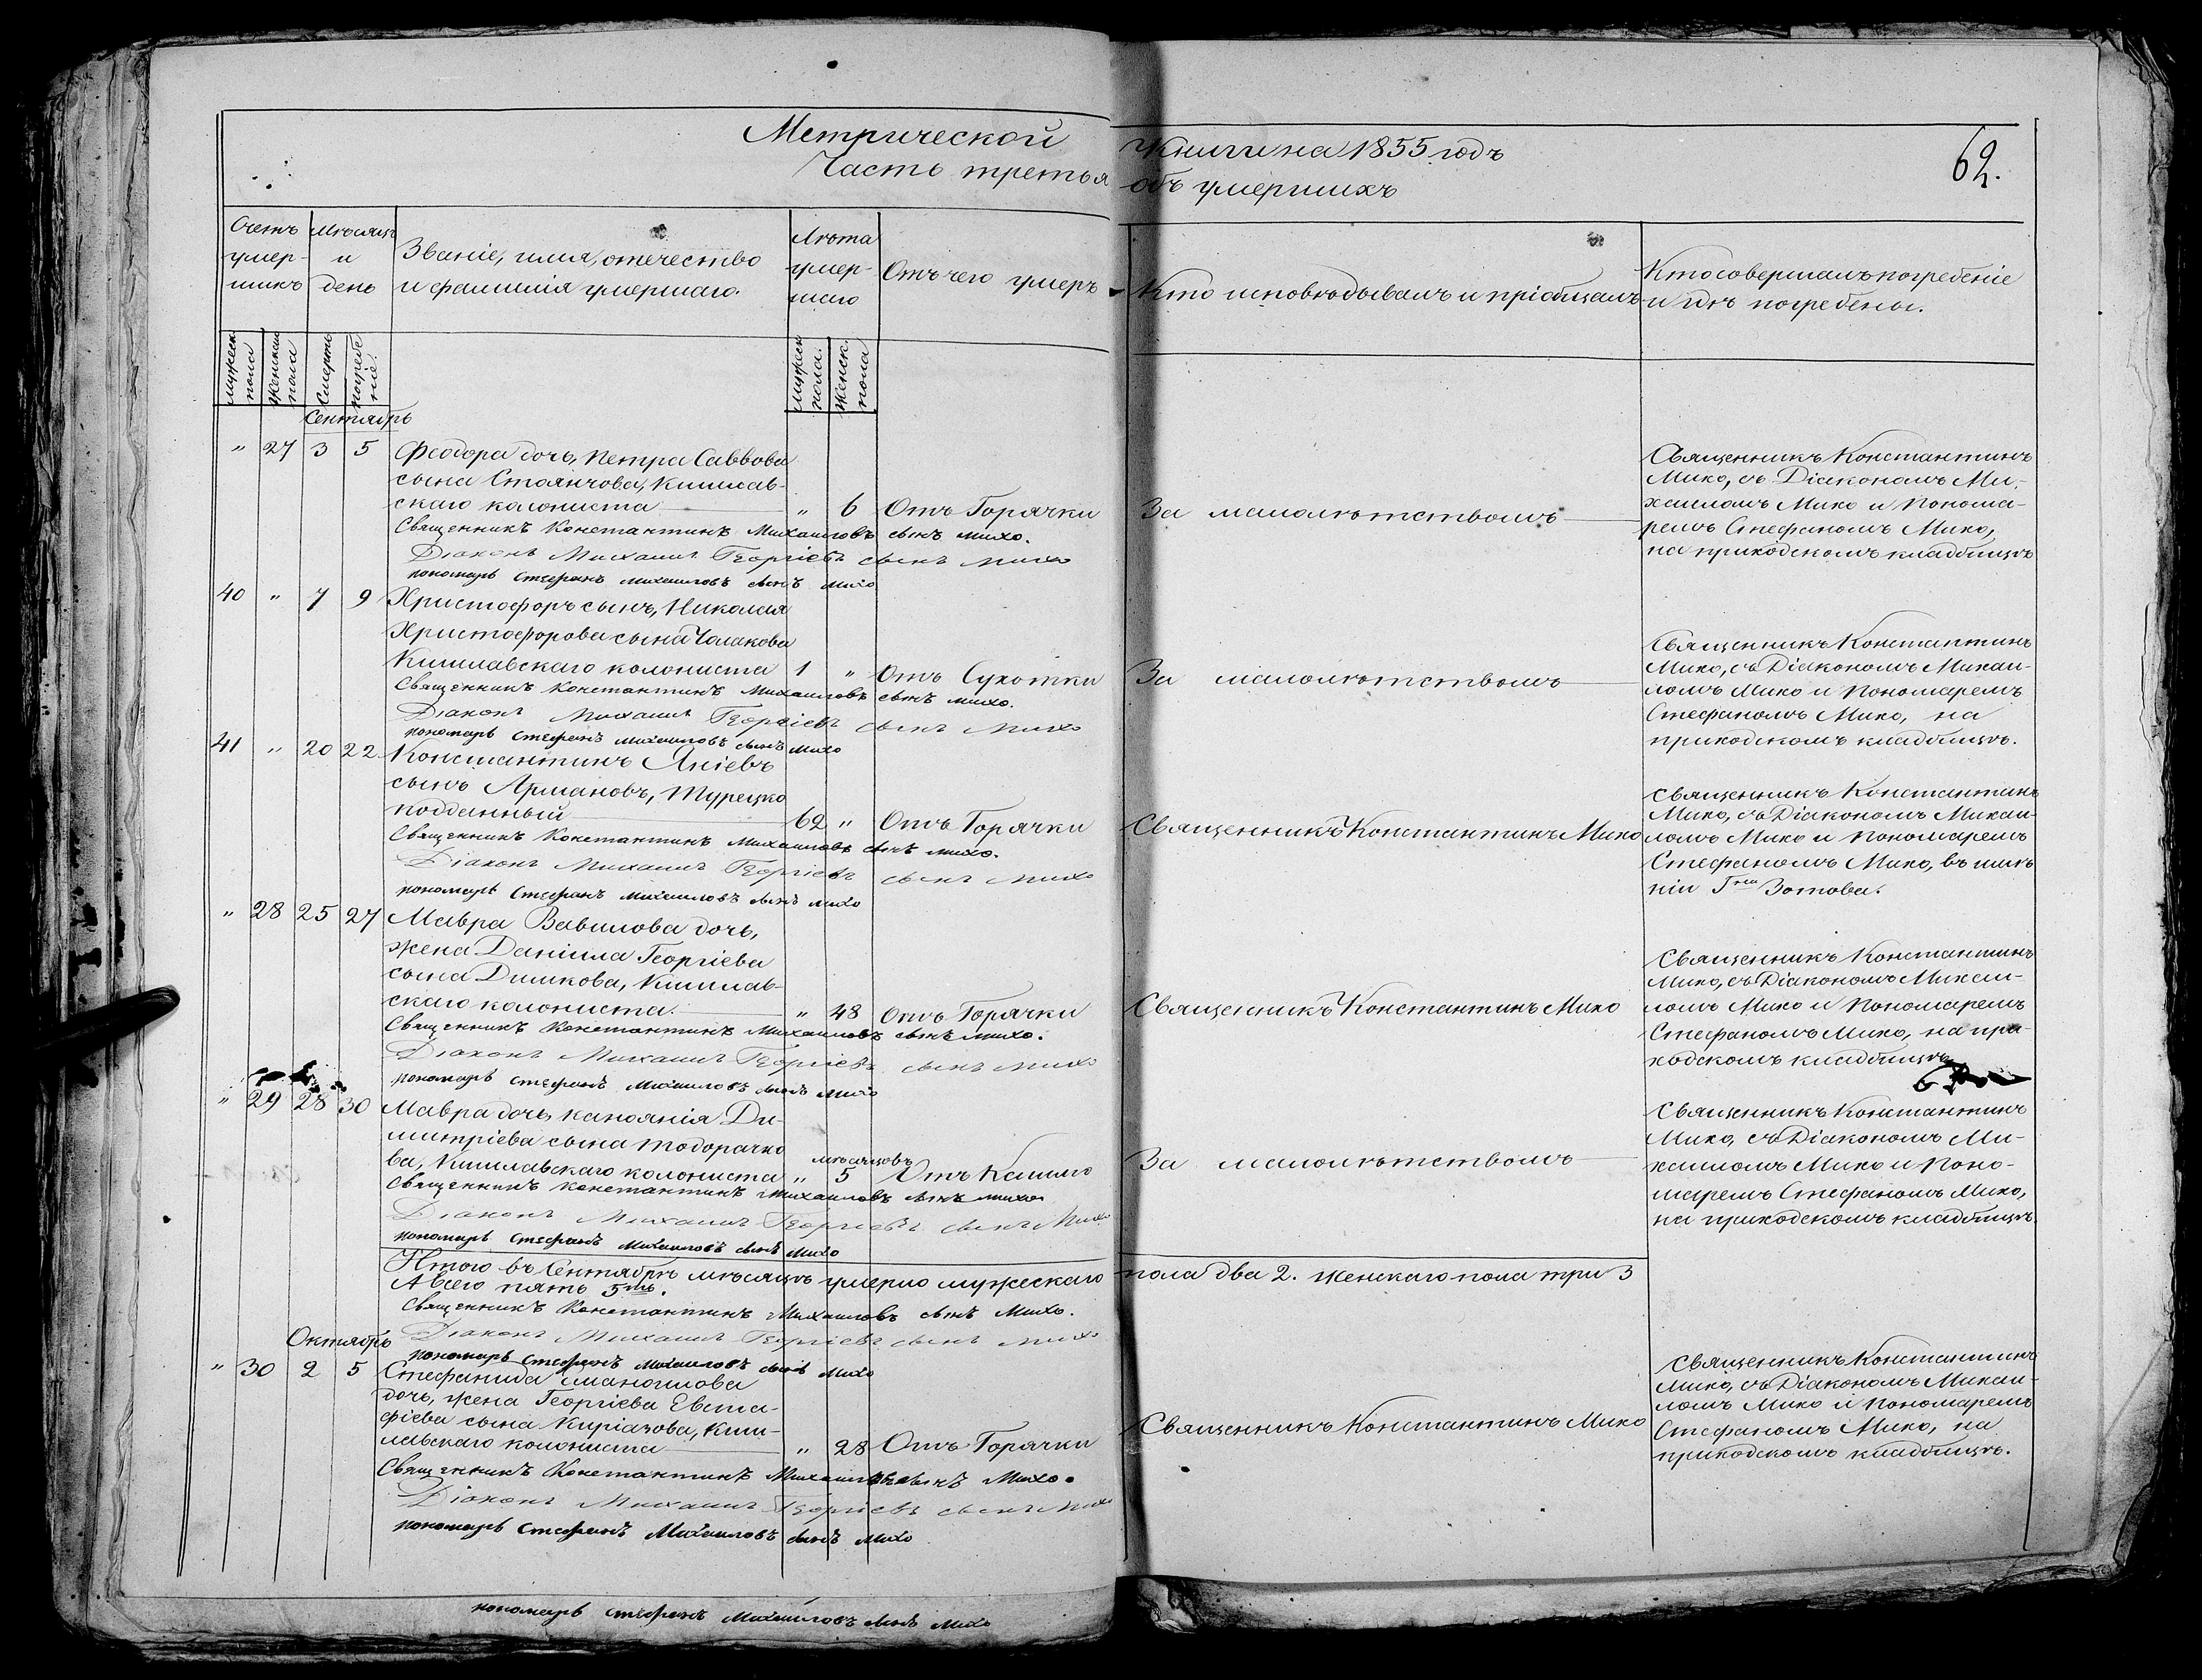 Метрической книги на 1855 годъ
Часть третья объ умершихъ
62.
Счетъ умер-шихъ
Мѣсяцъ и день
Званіе, имя, отечество
и фамилія умершаго.
Лѣта умер-шаго
Отъ чего умеръ
Кто исповѣдывалъ и пріобщалъ
Кто совершалъ погребеніе
и гдѣ погребены.
мужеск пола
Женскаго пола
Смерть
погребеніе.
мужеск пола.
женск. пола
Сентябрь
" 27 3 5
Феодора дочь, Петра Саввова
сына Стоянчова, Кишлав-
скаго колониста
" 6 Отъ Горячки
За малолѣтствомъ
Священникъ Константинъ
Михо, съ Діакономъ Ми-
хаиломъ Михо и Понома-
ремъ Стефаномъ Михо,
на приходскомъ кладбищѣ
Священникъ Константинъ Михаиловъ сынъ Михо.
Діаконъ Михаилъ Георгіевъ сынъ Михо
пономарь Стефанъ Михаиловъ сынъ Михо
40 " 7 9
Христофоръ сынъ, Николая
Христофорова сына Чолакова
Кишлавскаго колониста
1 " Отъ Сухотки
За малолѣтствомъ
Священникъ Константинъ
Михо, съ Діакономъ Михаи-
ломъ Михо и Пономаремъ
Стефаномъ Михо, на
приходскомъ кладбищѣ.
Священникъ Константинъ Михаиловъ сынъ Михо.
Діаконъ Михаилъ Георгіевъ сынъ Михо
пономарь Стефанъ Михаиловъ сынъ Михо
41 " 20 22
Константинъ Яніевъ
сынъ Армановъ, Турецко
подданный
62 " Отъ Горячки
Священникъ Константинъ Михо
Священникъ Константинъ
Михо, съ Діакономъ Михаи-
ломъ Михо и Пономаремъ
Стефаномъ Михо, въ имѣ-
ніи Гна Зотова.
Священникъ Константинъ Михаиловъ сынъ Михо.
Діаконъ Михаилъ Георгіевъ сынъ Михо
пономарь Стефанъ Михаиловъ сынъ Михо
" 28 25 27
Мавра Вавилова дочь,
жена Даніила Георгіева
сына Димкова, Кишлав-
скаго колониста.
" 48 Отъ Горячки
Священникъ Константинъ Михо
Священникъ Константинъ
Михо, съ Діакономъ Михаи-
ломъ Михо и Пономаремъ
Стефаномъ Михо, на при-
ходскомъ кладбищѣ
Священникъ Константинъ Михаиловъ сынъ Михо.
Діаконъ Михаилъ Георгіевъ сынъ Михо
пономарь Стефанъ Михаиловъ сынъ Михо
" 29 28 30
Мавра дочь, Каноянія Ди-
митріева сына Тодорачко
ва, Кишлавскаго колониста
мѣсяцовъ
" 5 Отъ Кашлю
За малолѣтствомъ
Священникъ Константинъ
Михо, съ Діакономъ Ми-
хаиломъ Михо и Поно-
маремъ Стефаномъ Михо,
на приходскомъ кладбищѣ.
Священникъ Константинъ Михаиловъ сынъ Михо
Діаконъ Михаилъ Георгіевъ сынъ Михо
пономарь Стефанъ Михаиловъ сынъ Михо
Итого въ Сентябрѣ мѣсяцѣ умерло мужескаго пола два 2. женскаго пола три 3
А всего пять 5ть.
Священникъ Константинъ Михаиловъ сынъ Михо.
Діаконъ Михаилъ Георгіевъ сынъ Михо
пономарь Стефанъ Михаиловъ сынъ Михо
Октябрь
" 30 2 5
Стефанида Маноилова
дочь, жена Георгіева Евста-
фіева сына Киріазова, Киш-
лавскаго колониста
" 28 Отъ Горячки
Священникъ Константинъ Михо
Священникъ Константинъ
Михо, съ Діакономъ Михаи-
ломъ Михо и Пономаремъ
Стефаномъ Михо, на
приходскомъ кладбищѣ.
Священникъ Константинъ Михаиловъ сынъ Михо.
Діаконъ Михаилъ Георгіевъ сынъ Михо
пономарь Стефанъ Михаиловъ сынъ Михо
пономарь Стефанъ Михаиловъ сынъ Михо